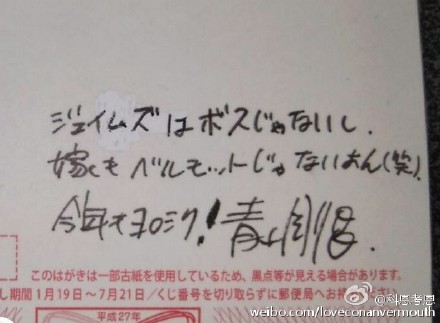 ジェイムズはボスじゃないし.
嫁もベルモットじゃないよん(笑).
今年もヨロシク!青山剛昌.
このはがきは一部古紙を使用しているため、黒点等が見える場合があります。
し期間1月19日〜7月21日/くじ番号を切り取らずに郵便局へお持ち
平成27年
@科恩考恩
weibo.com/loveconanvermouth